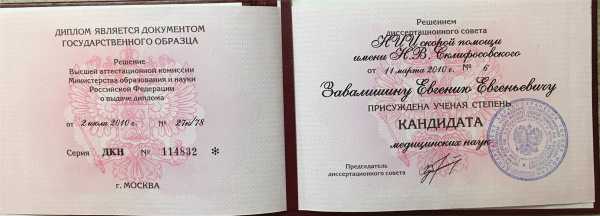 ДИПЛОМ ЯВЛЯЕТСЯ ДОКУМЕНТОМ
ГОСУДАРСТВЕННОГО ОБРАЗЦА
Решение
Высшей аттестационной комиссии
Министерства образования и науки
Российской Федерации
о выдаче диплома
от 2 июля 2010 г. №
Серия ДКН № 114832 *
г. МОСКВА
Решением
диссертационного совета
НИИ скорой помощи
имени Н.В. Склифосовского
от 11 марта 2010 г. № 6
Завалишину Евгению Евгеньевичу
ПРИСУЖДЕНА УЧЕНАЯ СТЕПЕНЬ
КАНДИДАТА
медицинских наук
Председатель
диссертационного совета